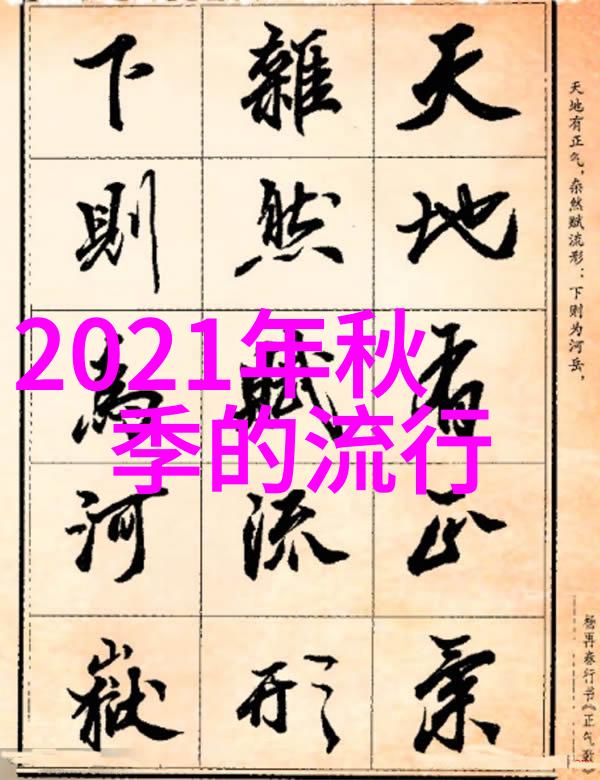 2021年秋
季的流行
天地有正氣
雜然賦流形
下則為河嶽
天地有正气，杂然赋流形：下则为河岳，
杨再春行书《正气歌》